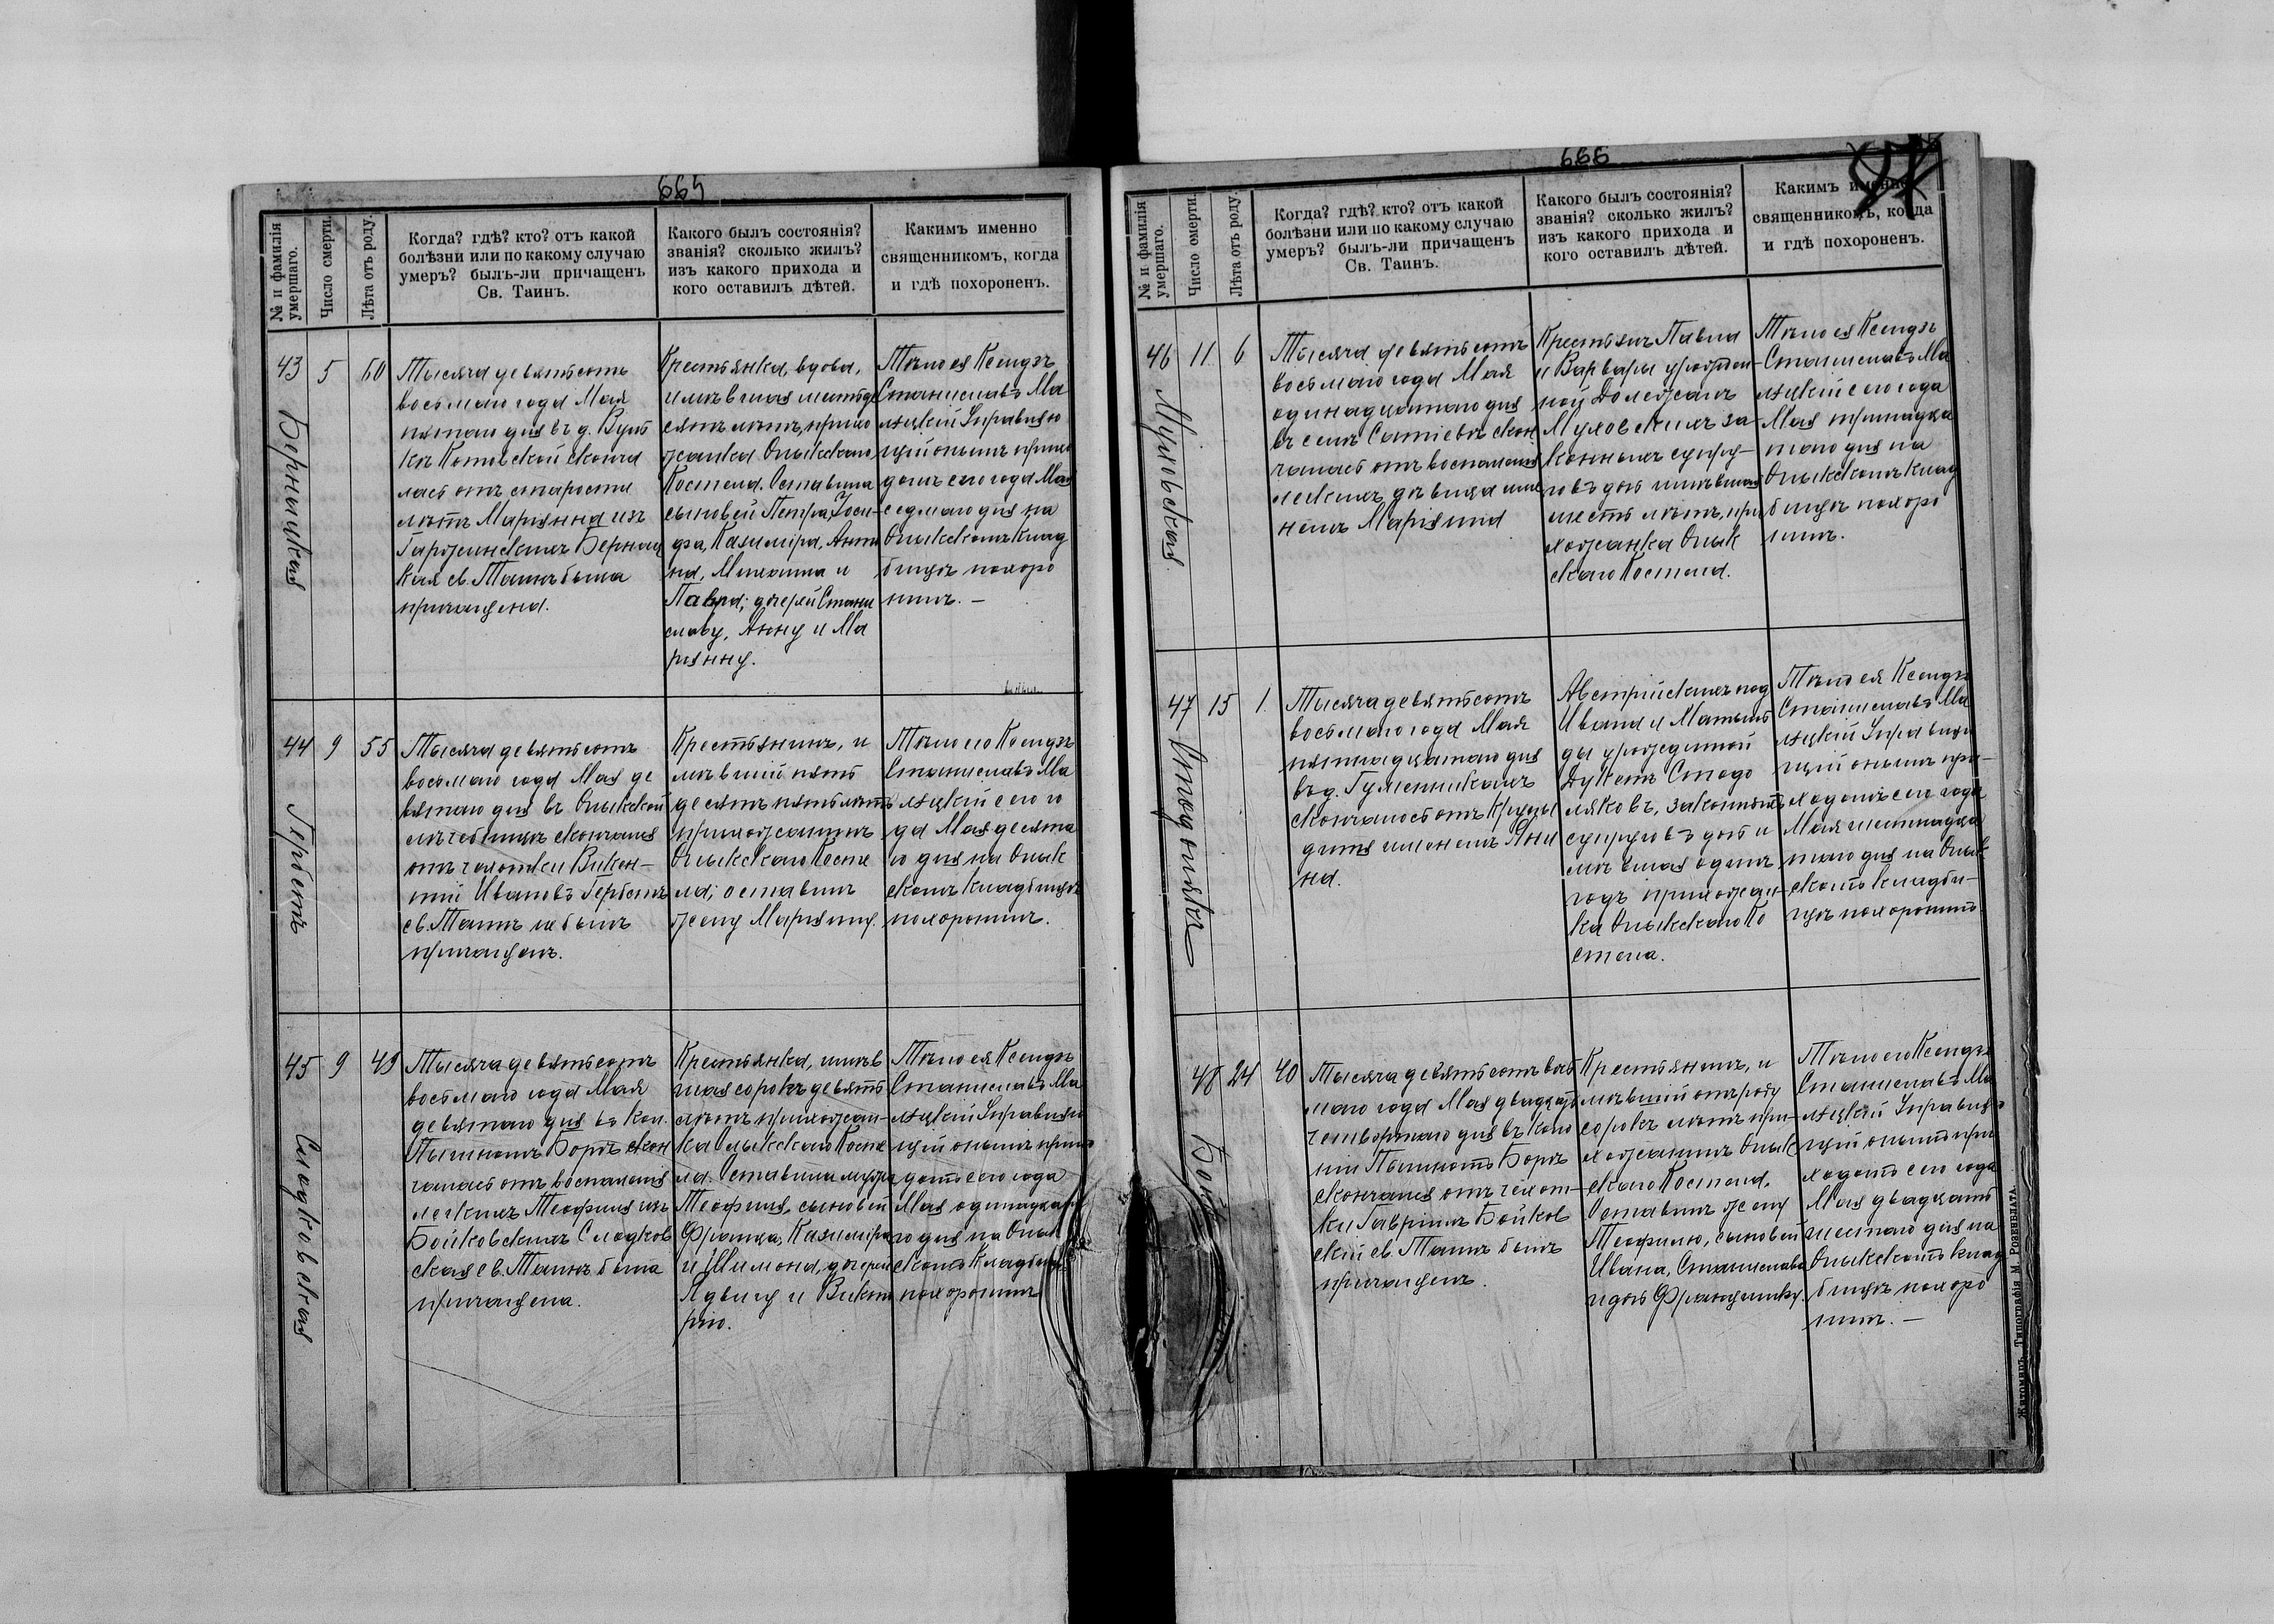 665
№ и фамилія
умершаго.
Число смерти.
Лѣта отъ роду.
Когда? гдѣ? кто? отъ какой
болѣзни или по какому случаю
умеръ? былъ-ли причащенъ
Св. Таинъ.
Какого былъ состоянія?
званія? сколько жилъ?
изъ какого прихода и
кого оставилъ дѣтей.
Какимъ именно
священникомъ, когда
и гдѣ похороненъ.
43
5
60
Тысяча девятьсотъ
восьмаго года Мая
пятаго дня въ д.
Котовской сконча
лась отъ старости
лѣтъ Маріянна изъ
Бернац
кая св. Таинъ была
причащена.
Крестьянка, вдова,
имѣвшая шестьде
сятъ лѣтъ, прихо
жанка Олыкскаго
Костела. Оставила
сыновей Петра, Іоси-
фа, Казиміра, Анто
на, Михаила и
Павла; дочерей Стани
славу, Анну и Ма
ріянну.
Тѣло ея Ксендзъ
Станиславъ Ма
лицкій Управляю
щій онымъ прихо
домъ сего года Мая
седмаго дня на
Олыкскомъ клад
бищѣ похоро
нилъ. —
44
9
55
Гербетъ
Тысяча девятьсотъ
восьмаго года Мая де
вятаго дня въ Олыкской
лѣчебницѣ скончался
отъ чахотки Викен-
тій Ивановъ Гербетъ
св. Таинъ не былъ
причащенъ.
Крестьянинъ, и
мѣвшій пять
десятъ пять лѣтъ
прихожанинъ
Олыкскаго Косте
ла; оставилъ
жену Маріянну.
Тѣло его Ксендзъ
Станиславъ Ма
лицкій сего го
да Мая десята
го дня на Олык
скомъ кладбищѣ
похоронилъ.
45
9
49
Слодковская
Тысяча девятьсотъ
восьмаго года Мая
девятаго дня въ кол.
Пышномъ Борѣ скон
чалась отъ воспаленія
легкихъ Теофиля изъ
Бойковскихъ Слодков
ская св. Таинъ была
причащена.
Крестьянка, имѣв
шая сорокъ девять
лѣтъ прихожан-
ка Олыкскаго Косте
ла. Оставила мужа
Теофиля, сыновей
Франца, Казиміра
и Шимона, дочерей
Ядвигу и Викто
рію.
Тѣло ея Ксендзъ
Станиславъ Ма
лицкій Управляю
щій онымъ прихо
домъ сего года
Мая одинадцата
го дня на Олык
скомъ кладбищѣ
похоронилъ
666
№ и фамилія
умершаго.
Число смерти.
Лѣта отъ роду.
Когда? гдѣ? кто? отъ какой
болѣзни или по какому случаю
умеръ? былъ-ли причащенъ
Св. Таинъ.
Какого былъ состоянія?
званія? сколько жилъ?
изъ какого прихода и
кого оставилъ дѣтей.
Какимъ именно
священникомъ, когда
и гдѣ похороненъ.
46
11
6
Муховская
Тысяча девятьсотъ
восьмаго года Мая
одинадцатаго дня
въ селѣ скон
чалась отъ воспаленія
легкихъ дѣвица име
немъ Маріянна
Крестьянъ Павла
и Варвары урожден-
ной
Муховскихъ за
конныхъ супру-
говъ дочь имѣвшая
шесть лѣтъ, при
хожанка Олык
скаго Костела.
Тѣло ея Ксендзъ
Станиславъ Ма
лицкій сего года
Мая тринадца
таго дня на
Олыкскомъ клад
бищѣ похоро
нилъ.
47
15
1
Тысяча девятьсотъ
восьмаго года Мая
пятнадцатаго дня
въ д. Гуменникахъ
скончалось отъ крупы
дитя именемъ Яни
на.
Австрійскихъ под
Ивана и Матиль
ды урожденной
Дукетъ Стодо
ляковъ, законныхъ
супруговъ дочь и
мѣвшая одинъ
годъ прихожан-
ка Олыкскаго Ко
стела.
Тѣло ея Ксендзъ
Станиславъ Ма
лицкій Управляю
щій онымъ при-
ходомъ сего года
Мая шестнадца
таго дня на Олык
скомъ кладби-
щѣ похоронилъ
48
24
40
Тысяча девятьсотъ вось
маго года Мая двадцать
четвертаго дня въ коло
ніи Пышномъ Борѣ
скончался отъ чахот-
ки Гавріилъ Бойков
скій св. Таинъ былъ
причащенъ.
Крестьянинъ, и
мѣвшій отъ роду
сорокъ лѣтъ при-
хожанинъ Олык
скаго Костела.
Оставилъ жену
Теофилю, сыновей
Ивана, Станислава
и дочь Францишку.
Тѣло его Ксендзъ
Станиславъ Ма
лицкій Управляю
щій онымъ при
ходомъ сего года
Мая двадцать
шестаго дня на
Олыкскомъ клад
бищѣ похоро
нилъ. —
Житомиръ. Типографія М. Розенблата.